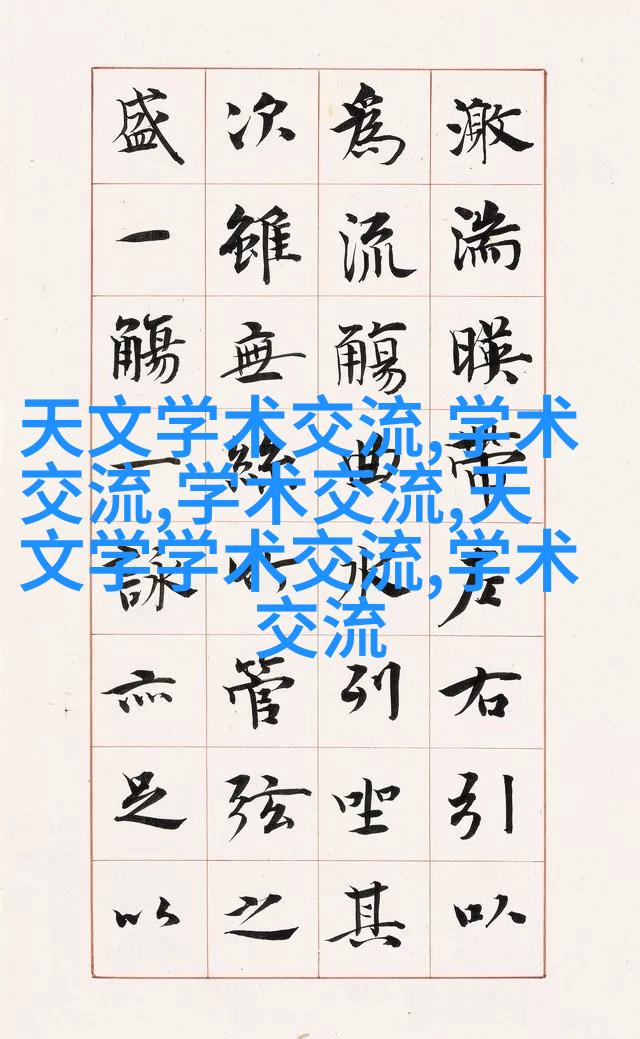 激湍暎帶左右引以
爲流觴曲水列坐其
次雖無絲竹管弦之
盛一觴一詠亦足以
天文学术交流,学术
交流,学术交流,天
文学学术交流,学术
交流